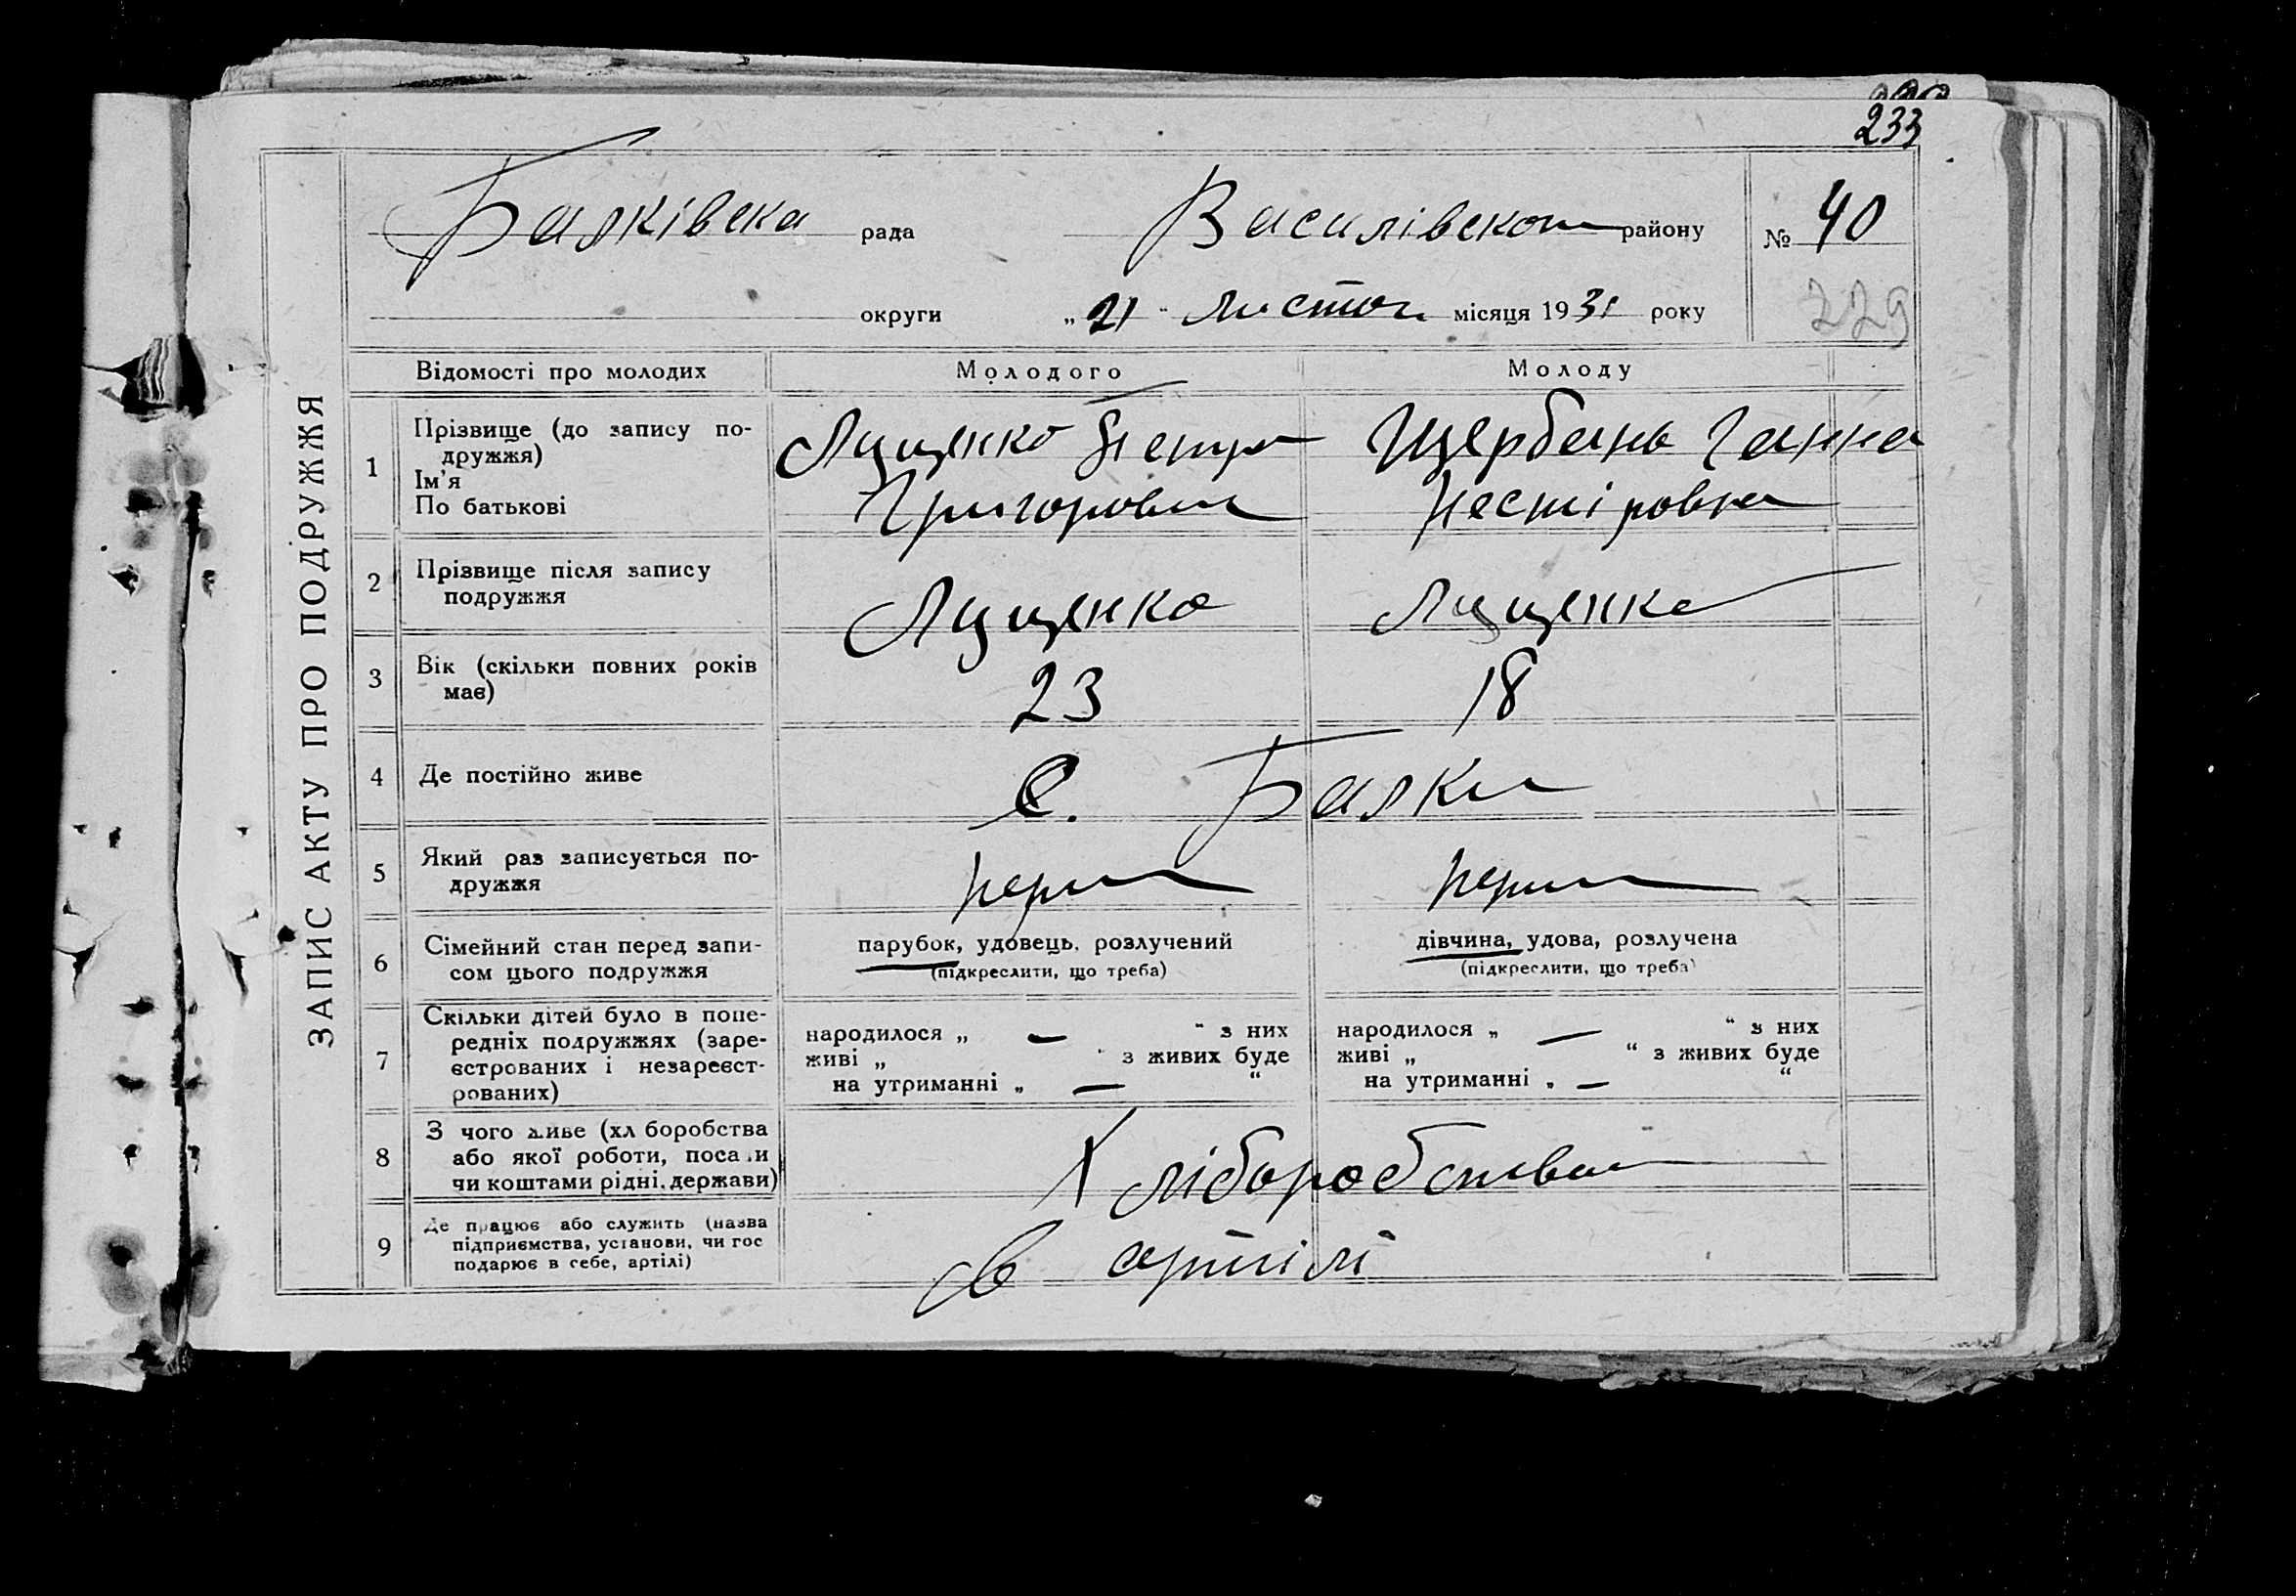 233
Балківська рада Василівского району № 40
округи „21“ листоп місяця 1931 року
229
ЗАПИС АКТУ ПРО ПОДРУЖЖЯ
Відомості про молодих Молодого Молоду
1 Прізвище (до запису по-
дружжя)
Ім’я
По батькові
Лященко Петро
Григорович
Щербань Ганна
Нестіровна
2 Прізвище після запису
подружжя
Лященко Лященко
3 Вік (скільки повних років
має)
23 18
4 Де постійно живе С. Балки
5 Який раз записується по-
дружжя
перш перш
6 Сімейний стан перед запи-
сом цього подружжя
парубок, удовець, розлучений
(підкреслити, що треба)
дівчина, удова, розлучена
(підкреслити, що треба)
7 Скільки дітей було в попе-
редніх подружжях (заре-
єстрованих і незареєст-
рованих)
народилося „ — “ з них
живі „ “ з живих буде
на утриманні „ — “
народилося „ — “ з них
живі „ “ з живих буде
на утриманні „ — “
8 З чого живе (хл боробства
або якої роботи, посади
чи коштами рідні, держави)
Хліборобства
9 Де працює або служить (назва
підприємства, установи, чи гос
подарює в себе, артілі)
в артілі